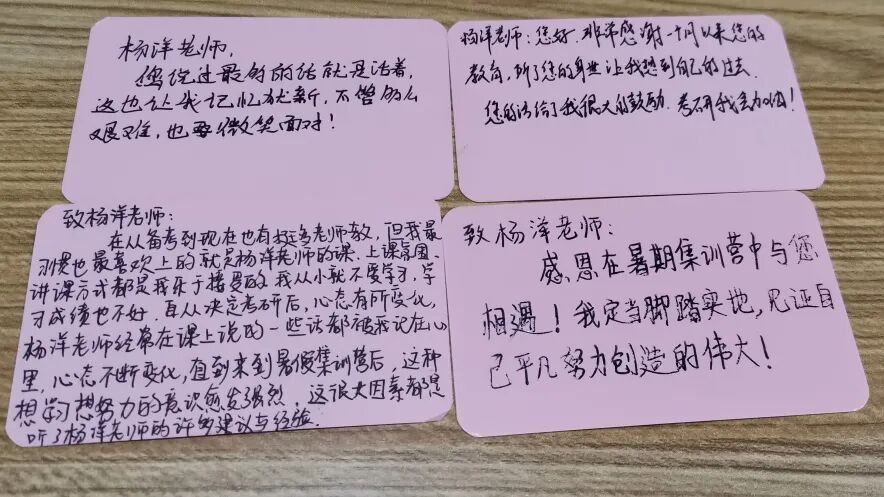 杨洋老师,
您说过最多的话就是活着,
这也让我记忆犹新,不管多么
艰难,也要微笑面对!
杨洋老师:您好.非常感谢一个月以来您的
教育,听了您的身世让我想到自己的过去.
您的话给了我很大的鼓励.考研我会加油!
致杨洋老师:
在从备考到现在也有挺多老师教,但我最
习惯也最喜欢上的就是杨洋老师的课.上课氛围、
讲课方式都是我乐于接受的.我从小就不爱学习,学
习成绩也不好.自从决定考研后,心态有所变化,
杨洋老师经常在课上说的一些话都被我记在心
里,心态不断变化,直到来到暑假集训营后,这种
想学习想努力的意识愈发强烈,这很大因素都是
听了杨洋老师的许多建议与经验.
致杨洋老师:
感恩在暑期集训营中与您
相遇!我定当脚踏实地,见证自
己平凡努力创造的伟大!